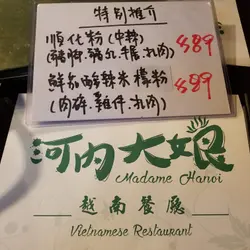 特別推介
順化粉（中辣） $89
（豬脚、豬丸、牛展、扎肉）
鮮茄酸辣米檬粉 $89
（肉碎、雞件、扎肉）
河内大娘
Madame Hanoi
越南餐廳
Vietnamese Restaurant